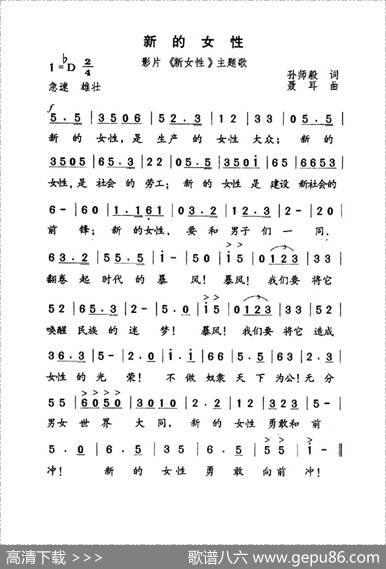 新 的 女 性
1=♭D 2/4
影片《新女性》主题歌
孙师毅 词
急速 雄壮
聂 耳 曲
f
5.5 | 3506 | 52.3 | 22 | 05.5 | 33 | 02.3 | 5- |
新 的 女性, 是 生产 的 女性 大众; 新 的
3505 | 65.3 | 22 | 05.5 | 3505i | 65 | 6653 |
女性, 是 社会 的 劳工; 新 的 女性 是 建设 新社会的
6- | 60 | 1.161 | 03.2 | 12.3 | 2- | 20 |
前 锋; 新 的女性, 要 和 男子 们 一 同.
63.2 | 55.5 | i.5 | i5 | i5 | 0123 | 33 |
翻卷 起 时代 的 暴 风! 暴风! 我们要 将它
52 | 65.3 | 2- | 5.0 | i5 | 0123 | 33 |
唤醒 民族 的 迷 梦! 暴风! 我们要 将它 造成
36.3 | 5- | 2.0 | i.i | 66 | 5.5 | 63 | 2.3 |
女性 的 光 荣! 不 做 奴隶 天 下 为公! 无 分
55 | 6050 | 3010 | 2- | 20 | 12.3 | 323 | 5- |
男女 世界 大同, 新 的 女性 勇敢 和 前
5.0 | 6.5 | 35 | 6.5 | 35 | 5.5 | i- ‖
冲! 新 的 女性 勇 敢 向前 冲!
高清下载 >>>
歌谱八六 www.gepu86.com